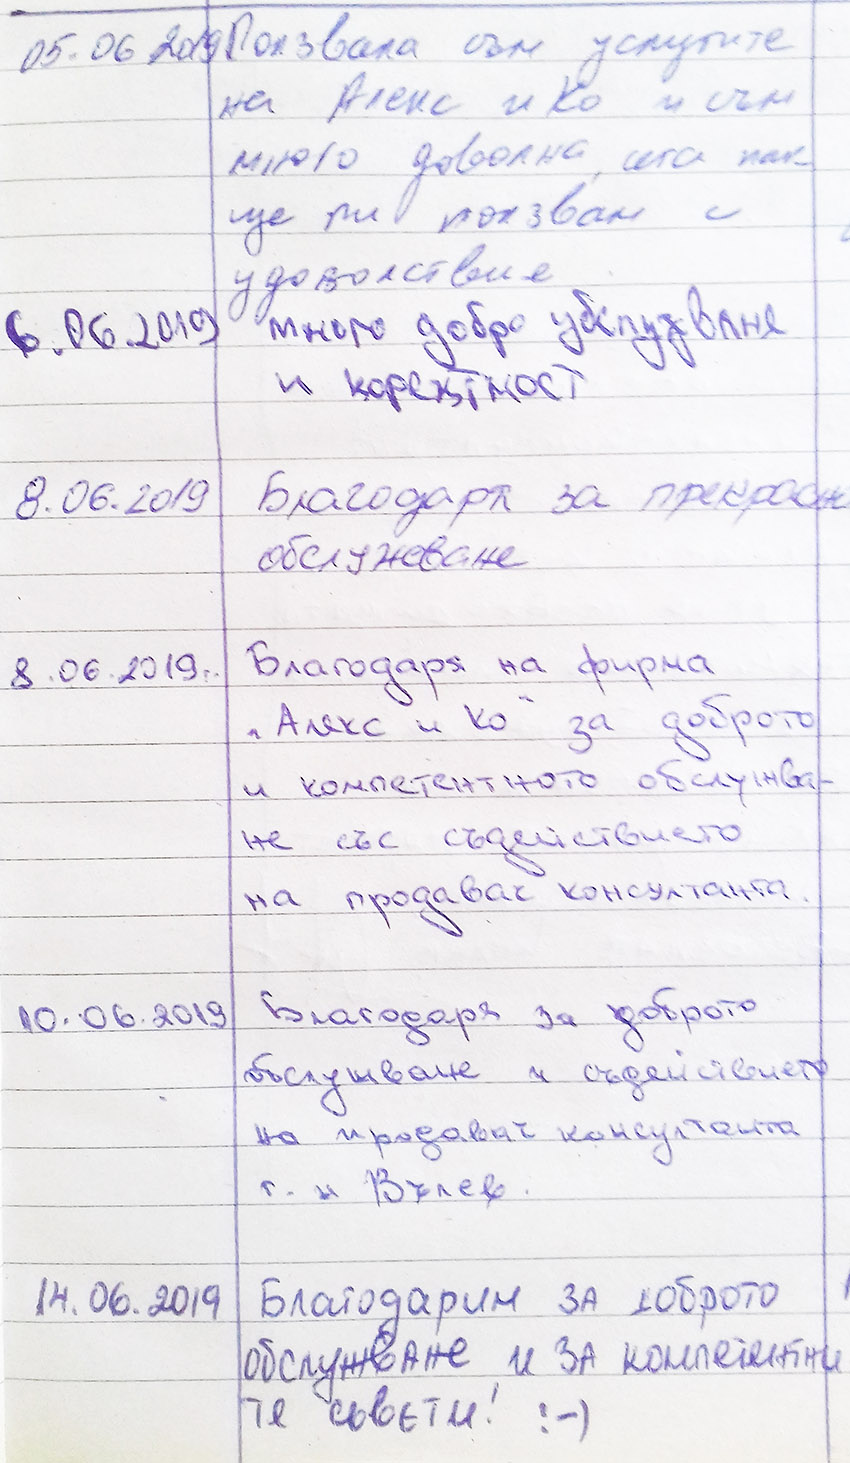 05.06 2019 Ползвала съм услугите
на Алекс и Ко и съм
много доволна, сега пак
ще ги ползвам с
удоволствие
6.06.2019 много добро убслужване
и коректност
8.06.2019 Благодаря за прекрасн
обслужеване
8.06.2019г. Благодаря на фирма
"Алекс и Ко" за доброто
и компетентното обслужва-
не със съдействието
на продавач консултанта.
10.06.2019 Благодаря за доброто
обслужване и съдействието
на продавач консултанта
г.н Вълев.
14.06.2019 Благодарим за доброто
обслужване и за компетентни
те съвети! :-)